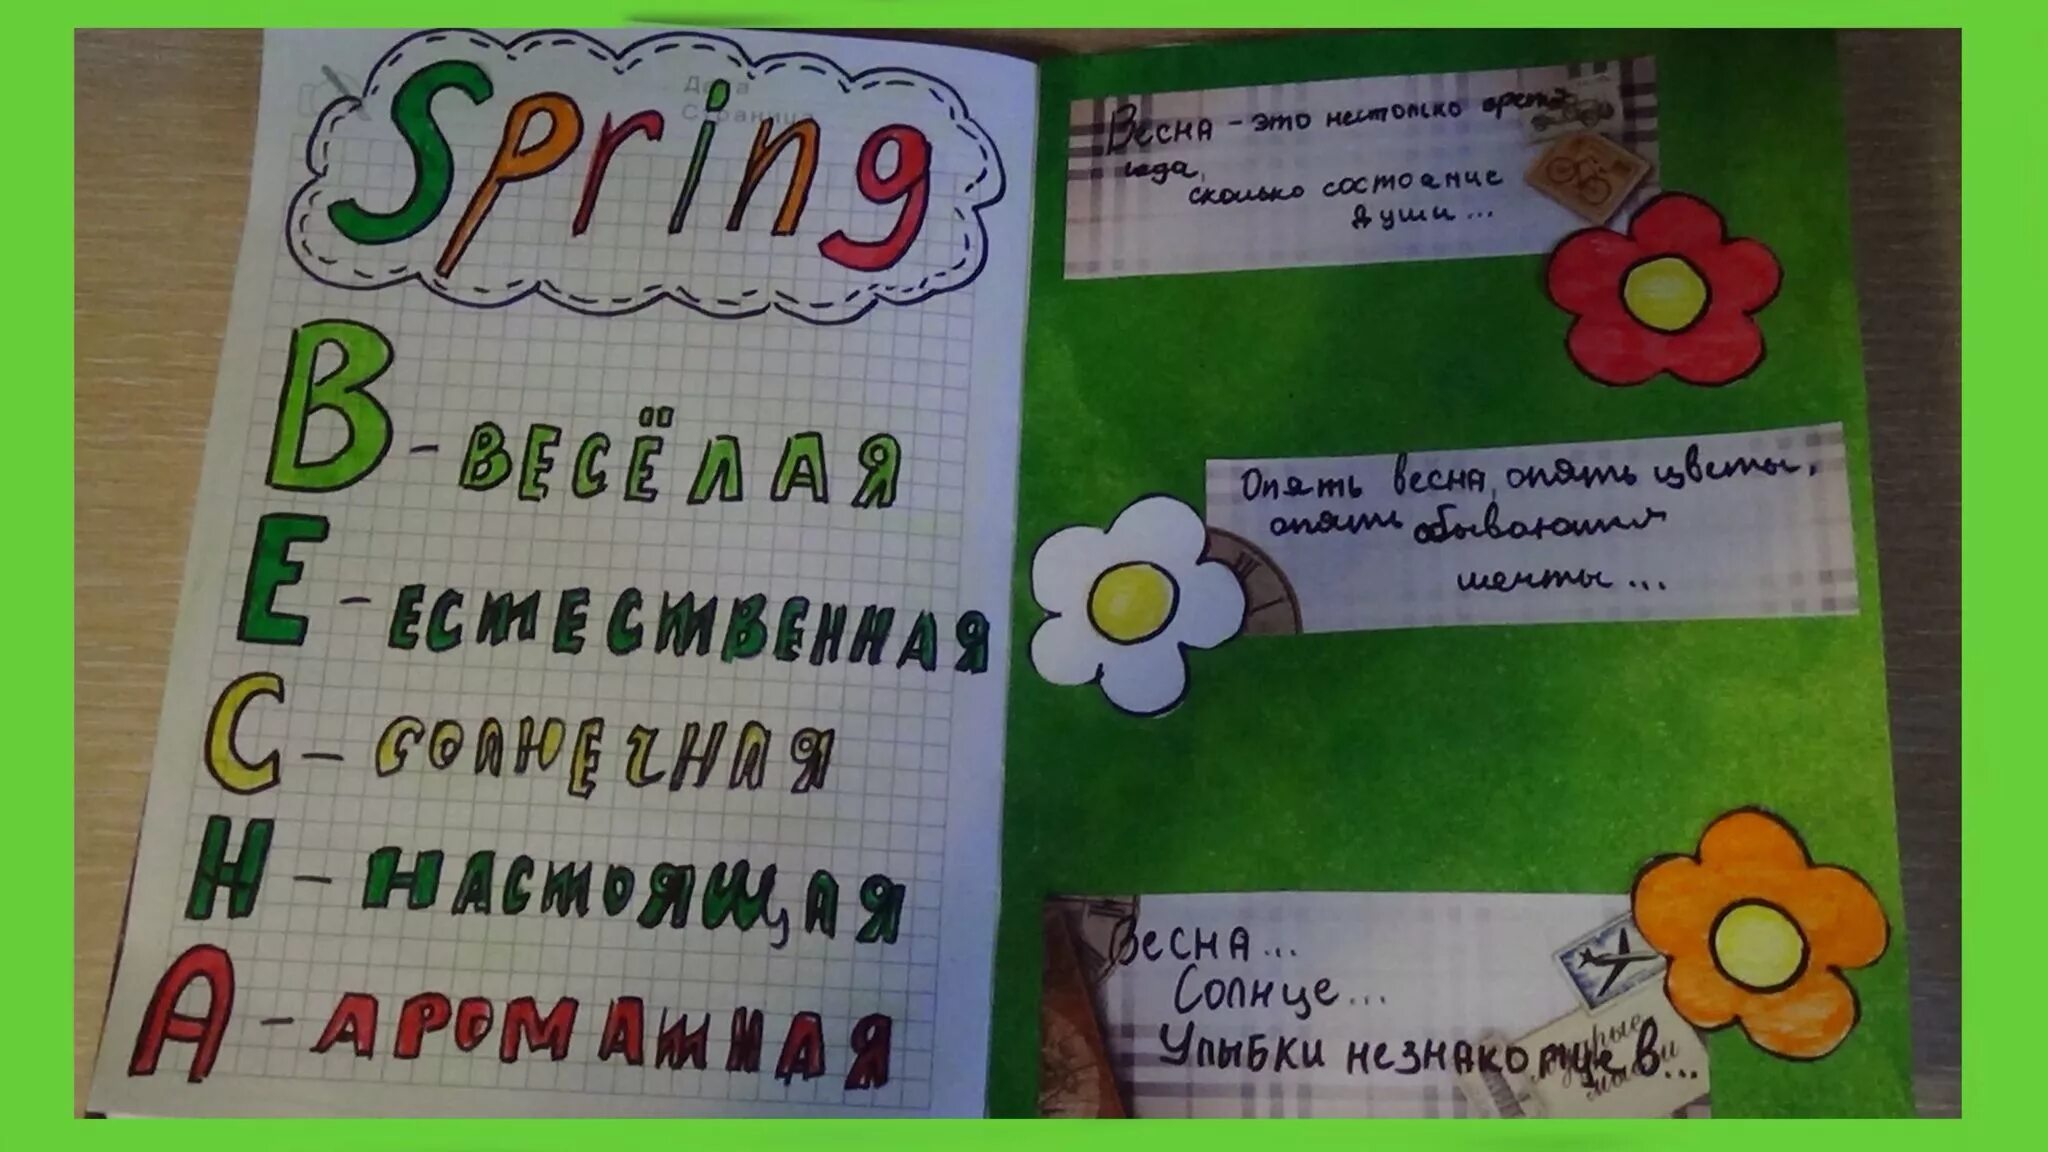 Дата
Страница
Spring
В - ВЕСЁЛАЯ
Е - ЕСТЕСТВЕННАЯ
С - СОЛНЕЧНАЯ
Н - НАСТОЯЩАЯ
А - АРОМАТНАЯ
Весна - это нестолько время
года,
сколько состояние
души...
Опять весна, опять цветы,
опять сбываются
мечты...
Весна...
Солнце...
Улыбки незнакомцев...